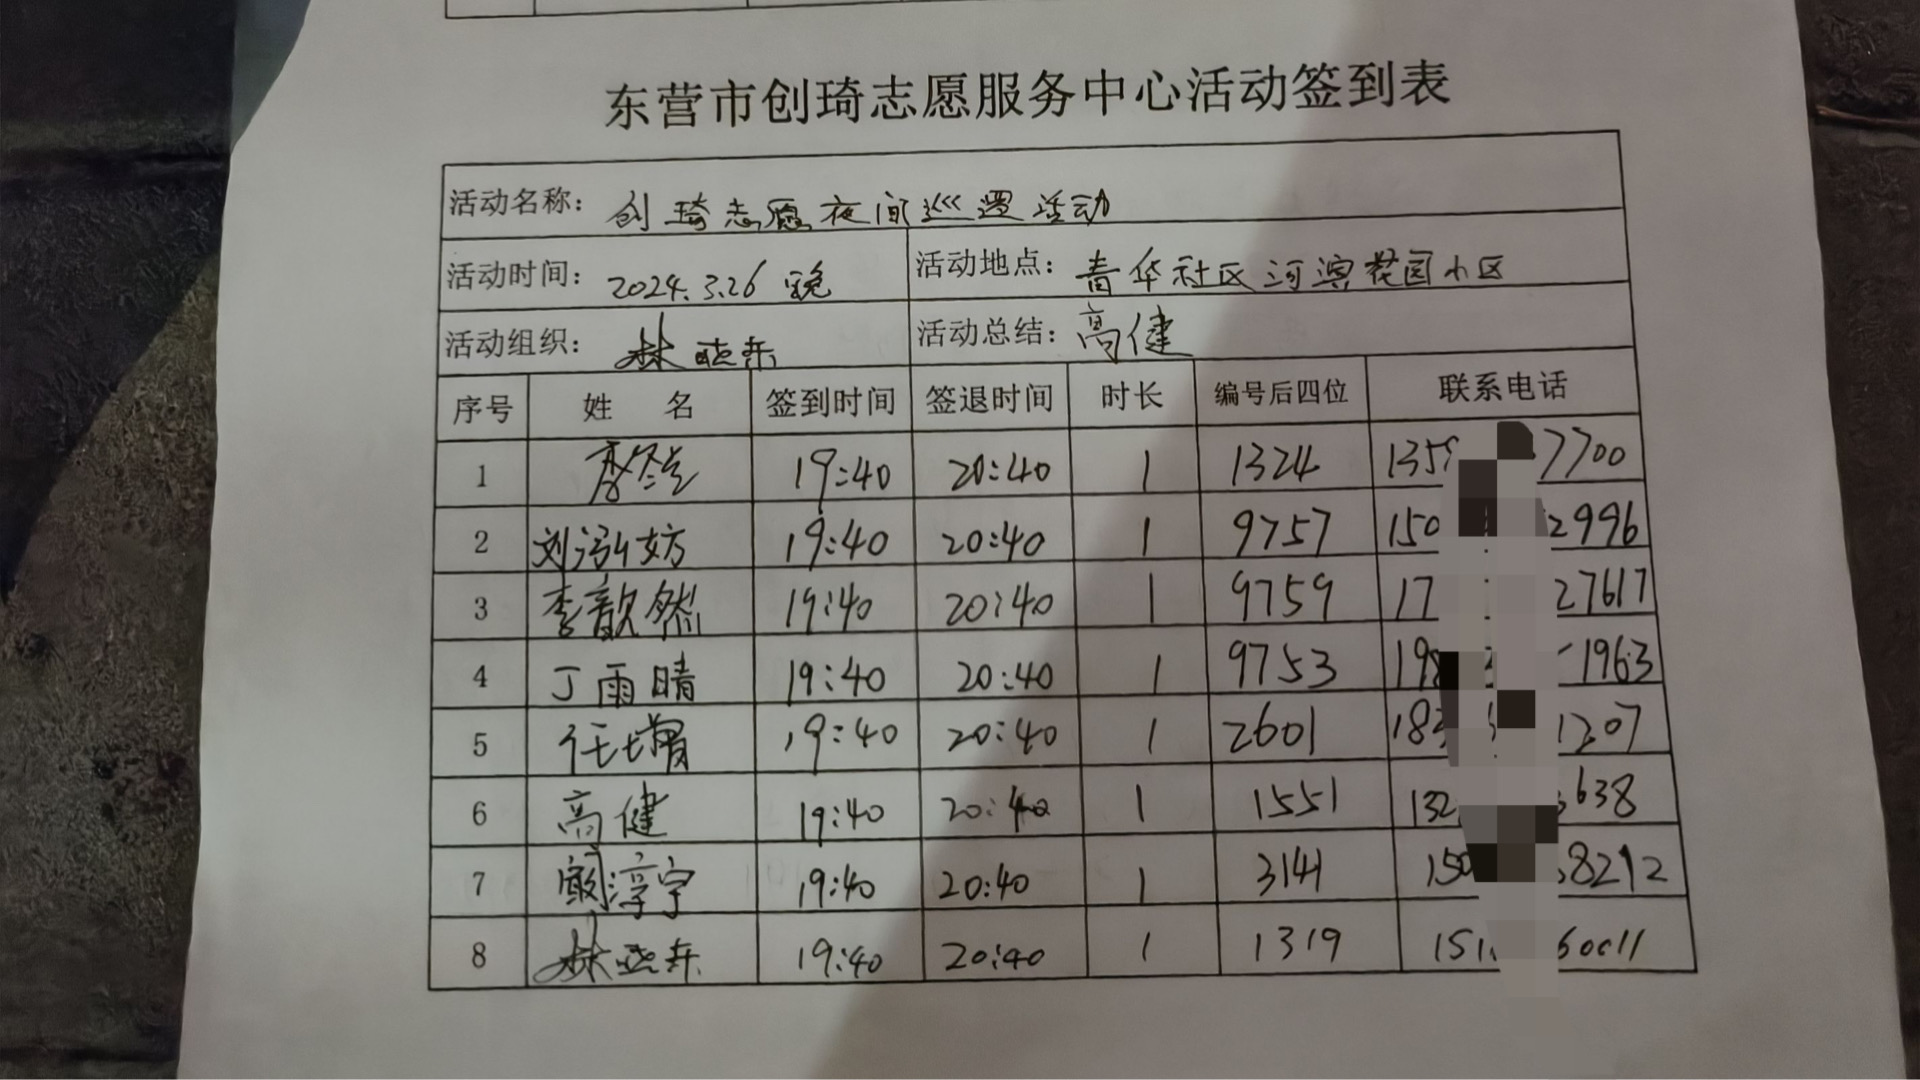 东营市创琦志愿服务中心活动签到表
活动名称: 创琦志愿夜间巡逻活动
活动时间: 2024.3.26 晚 活动地点: 青华社区河滨花园小区
活动组织: 林晓东 活动总结: 高健
序号 姓 名 签到时间 签退时间 时长 编号后四位 联系电话
1 19:40 20:40 1 1324 135 7700
2 刘泓妏 19:40 20:40 1 9757 150 2996
3 李歆然 19:40 20:40 1 9759 17 27617
4 丁雨晴 19:40 20:40 1 9753 198 1963
5 任增 19:40 20:40 1 2601 183 1207
6 高健 19:40 20:40 1 1551 132 638
7 阚淳宇 19:40 20:40 1 3141 150 8212
8 林晓东 19:40 20:40 1 1319 151 60011